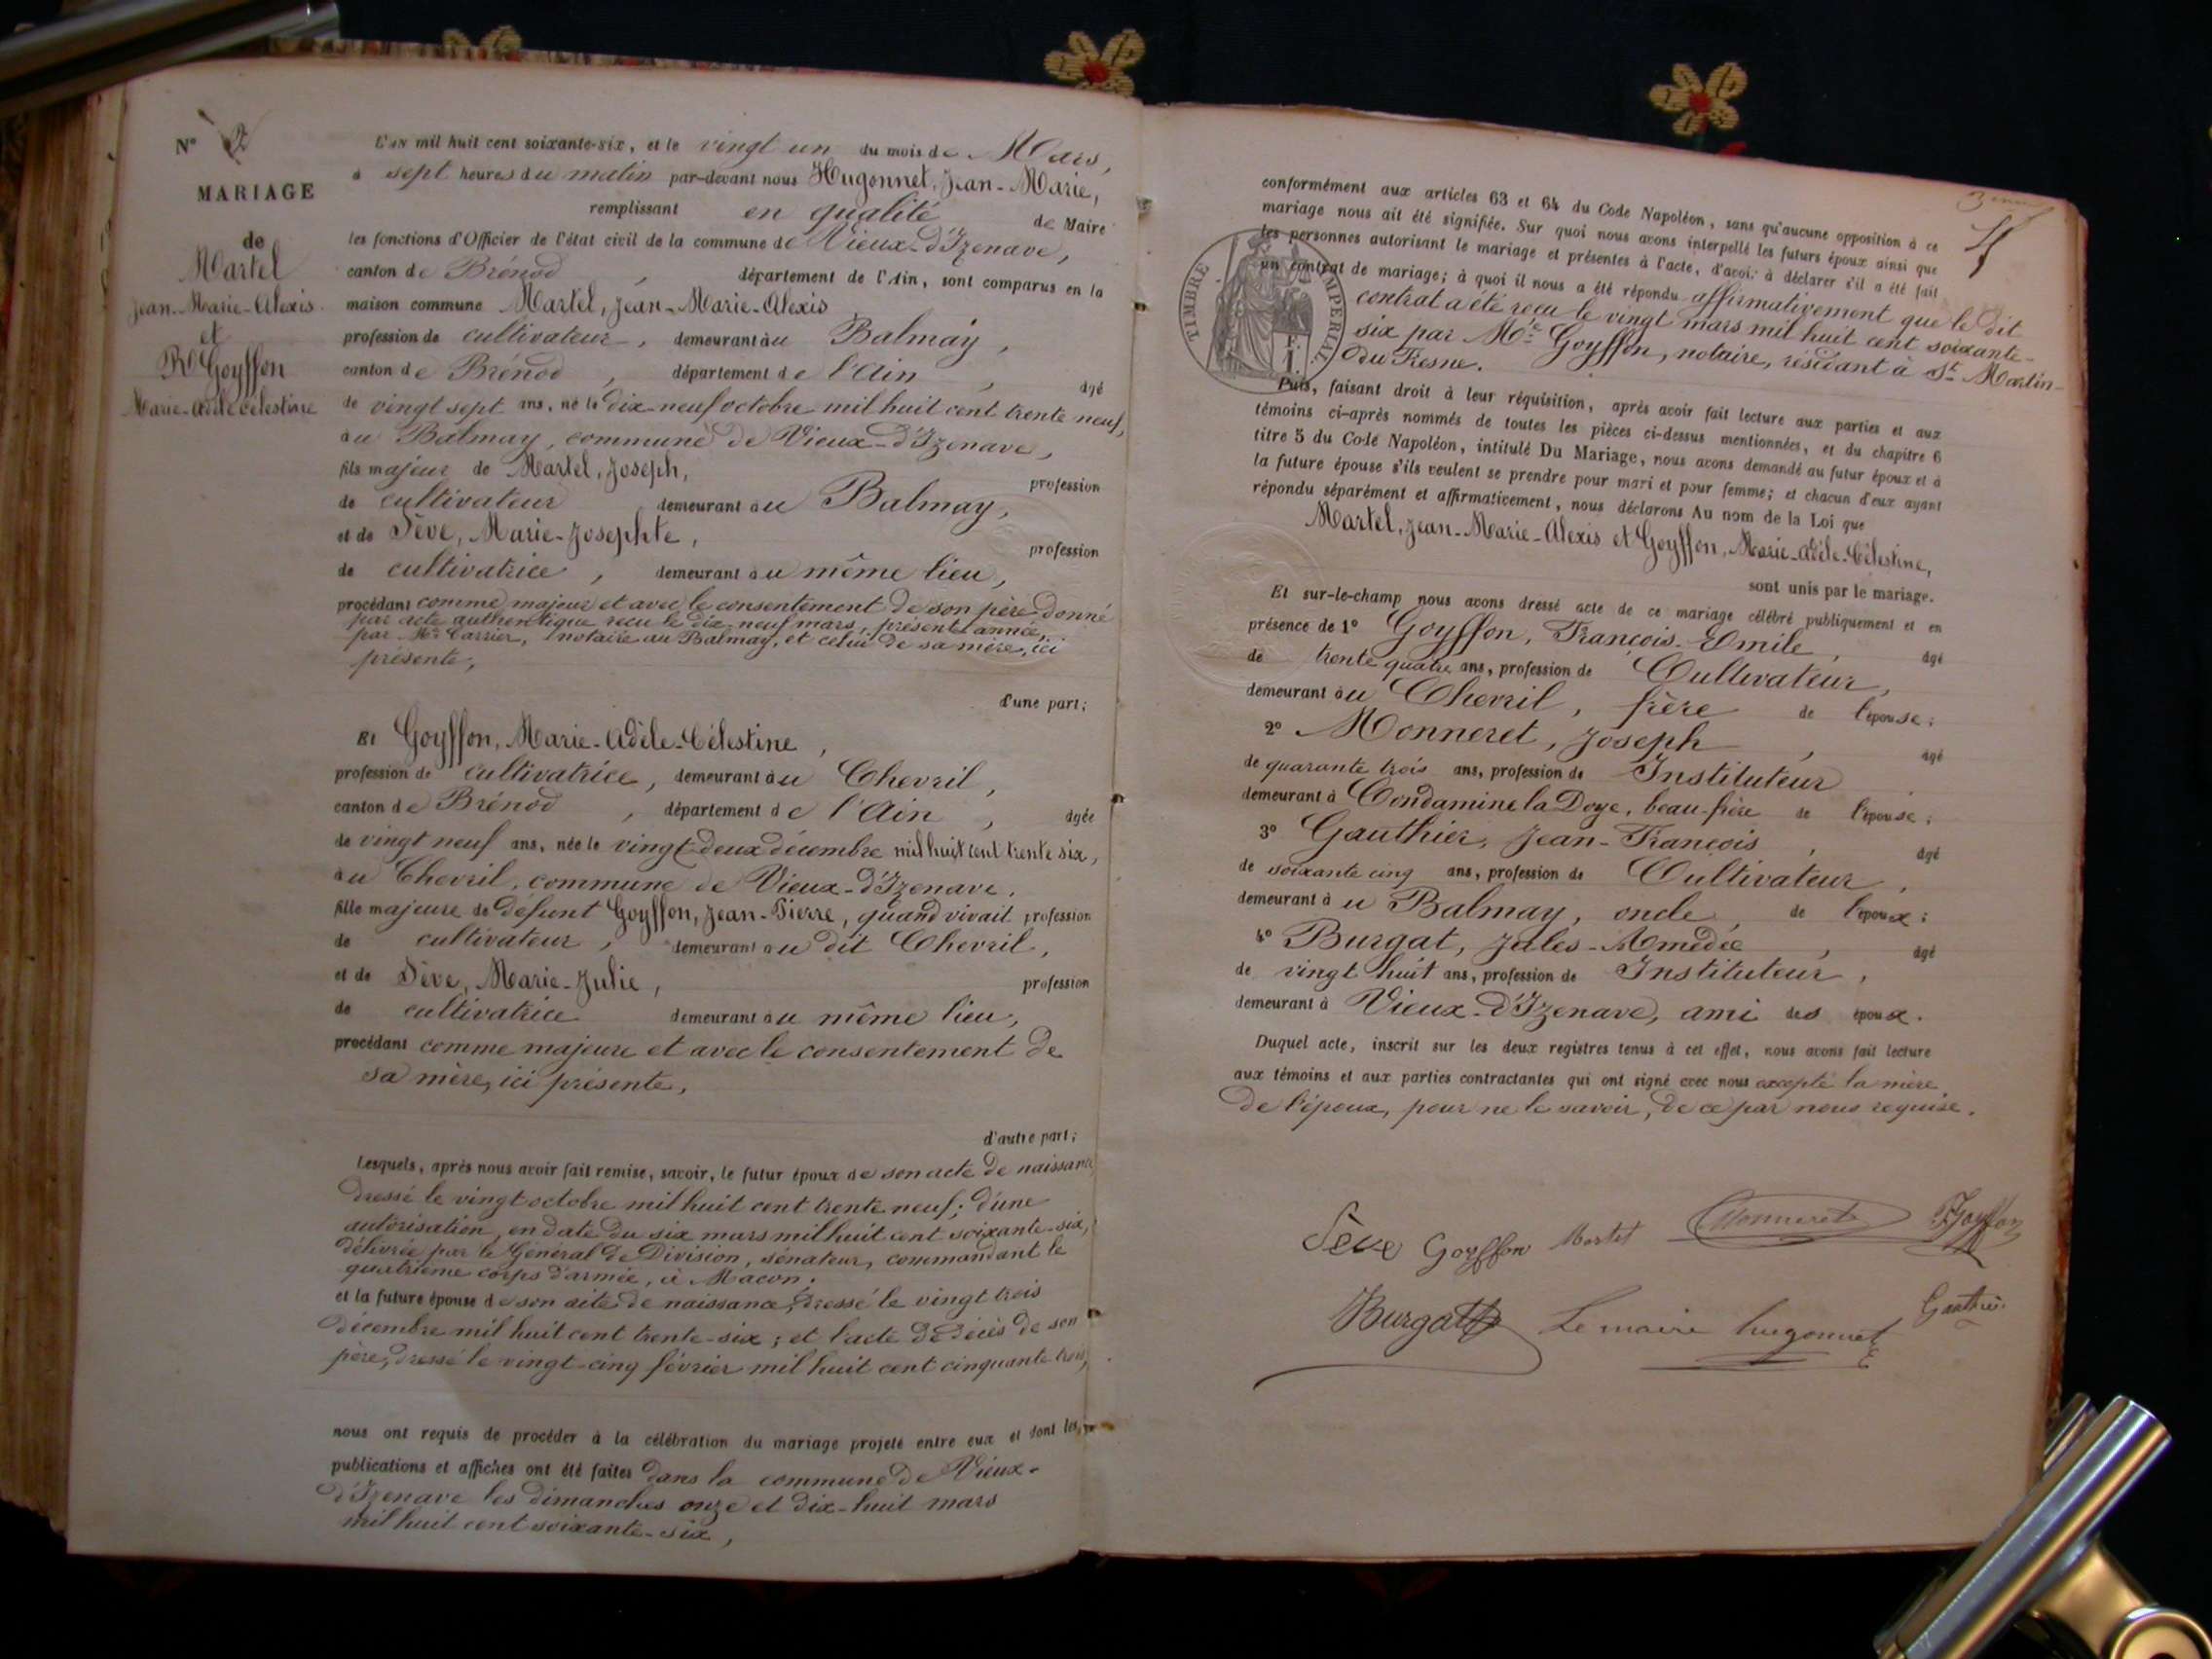 N° 2
MARIAGE
de
Martel
Jean-Marie-Alexis.
et
Goyffon
Marie-Adèle Célestine
L'AN mil huit cent soixante-six, et le vingt un du mois de Mars,
à sept heures du matin par-devant nous Hugonnet, Jean-Marie,
remplissant en qualité de Maire
les fonctions d'Officier de l'état civil de la commune de Vieux-d'Izenave,
canton de Brénod, département de l'Ain, sont comparus en la
maison commune Martel, Jean-Marie-Alexis
profession de cultivateur, demeurant au Balmay,
canton de Brénod, département de l'Ain, âgé
de vingt sept ans, né le dix-neuf octobre mil huit cent trente neuf,
au Balmay, commune de Vieux-d'Izenave,
fils majeur de Martel, Joseph, profession
de cultivateur demeurant au Balmay,
et de Sève, Marie-Josephte, profession
de cultivatrice, demeurant au même lieu,
procédant comme majeur et avec le consentement de son père donné
par acte authentique reçu le dix-neuf mars, présente année,
par Me Carrier, notaire au Balmay, et celui de sa mère, ici
présente,
d'une part;
Et Goyffon, Marie-Adèle-Célestine,
profession de cultivatrice, demeurant au Chevril,
canton de Brénod, département de l'Ain, âgée
de vingt neuf ans, née le vingt deux décembre mil huit cent trente six,
au Chevril, commune de Vieux-d'Izenave,
fille majeure de défunt Goyffon, Jean-Pierre, quand vivait profession
de cultivateur, demeurant au dit Chevril,
et de Sève, Marie-Julie, profession
de cultivatrice demeurant au même lieu,
procédant comme majeure et avec le consentement de
sa mère, ici présente,
d'autre part;
Lesquels, après nous avoir fait remise, savoir, le futur époux de son acte de naissance
dressé le vingt octobre mil huit cent trente neuf; d'une
autorisation, en date du six mars mil huit cent soixante-six,
délivrée par le Général de Division, sénateur, commandant le
quatrième corps d'armée, à Macon;
et la future épouse de son acte de naissance, dressé le vingt trois
décembre mil huit cent trente-six; et l'acte de décès de son
père, dressé le vingt-cinq février mil huit cent cinquante trois,
nous ont requis de procéder à la célébration du mariage projeté entre eux et dont les
publications et affiches ont été faites dans la commune de Vieux-
d'Izenave les dimanches onze et dix-huit mars
mil huit cent soixante-six,
conformément aux articles 63 et 64 du Code Napoléon, sans qu'aucune opposition à ce
mariage nous ait été signifiée. Sur quoi nous avons interpellé les futurs époux ainsi que
les personnes autorisant le mariage et présentes à l'acte, d'avoir à déclarer s'il a été fait
un contrat de mariage; à quoi il nous a été répondu affirmativement que le dit
contrat a été reçu le vingt mars mil huit cent soixante-
six par Me Goyffon, notaire, résidant à St Martin-
du Fresne.
TIMBRE IMPERIAL
Puis, faisant droit à leur réquisition, après avoir fait lecture aux parties et aux
témoins ci-après nommés de toutes les pièces ci-dessus mentionnées, et du chapitre 6
titre 5 du Code Napoléon, intitulé Du Mariage, nous avons demandé au futur époux et à
la future épouse s'ils veulent se prendre pour mari et pour femme; et chacun d'eux ayant
répondu séparément et affirmativement, nous déclarons Au nom de la Loi que
Martel, Jean-Marie-Alexis et Goyffon, Marie-Adèle-Célestine,
sont unis par le mariage.
Et sur-le-champ nous avons dressé acte de ce mariage célébré publiquement et en
présence de 1° Goyffon, François-Emile, âgé
de trente quatre ans, profession de Cultivateur,
demeurant au Chevril, frère de l'épouse;
2° Monneret, Joseph, âgé
de quarante trois ans, profession de Instituteur
demeurant à Condamine la Doye, beau-frère de l'épouse;
3° Gauthier, Jean-François, âgé
de soixante cinq ans, profession de Cultivateur,
demeurant au Balmay, oncle, de l'époux;
4° Burgat, Jules-Amédée, âgé
de vingt huit ans, profession de Instituteur,
demeurant à Vieux-d'Izenave, ami des époux.
Duquel acte, inscrit sur les deux registres tenus à cet effet, nous avons fait lecture
aux témoins et aux parties contractantes qui ont signé avec nous excepté la mère
de l'époux, pour ne le savoir, de ce par nous requise.
Sève Goyffon Martel Monneret F Goyffon
Burgat Le maire hugonnet Gauthier